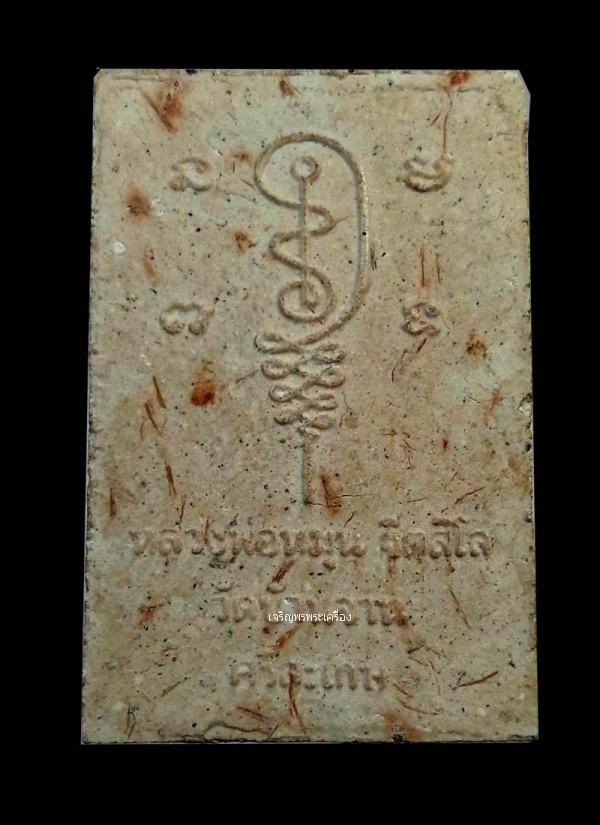 หลวงพ่อหมุน ฐิตสีโล
วัดบ้านจาน
เจริญพรพระเครื่อง
ศรีสะเกษ